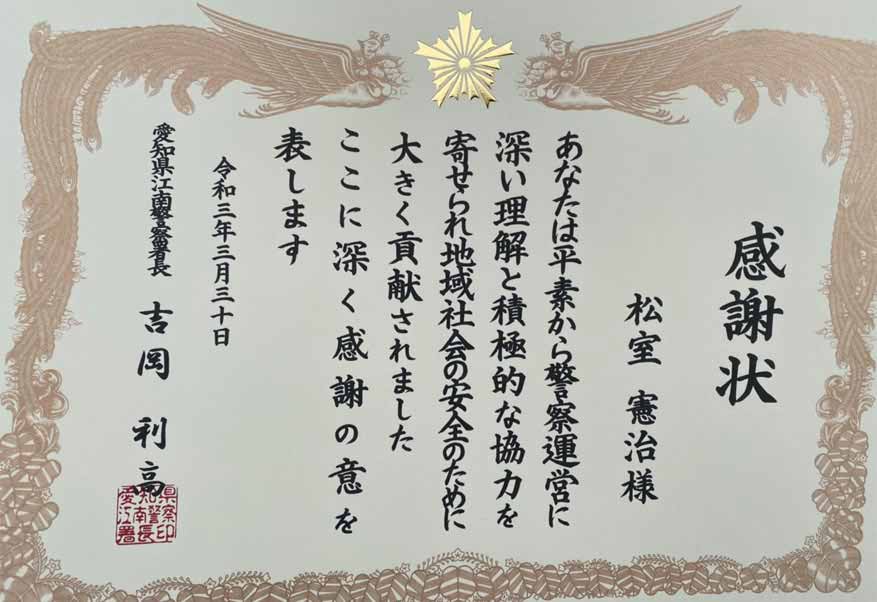 感謝状
松室 憲治様
あなたは平素から警察運営に
深い理解と積極的な協力を
寄せられ地域社会の安全のために
大きく貢献されました
ここに深く感謝の意を
表します
令和三年三月三十日
愛知県江南警察署長 吉岡 利高
県察印
知警
南長
愛江署